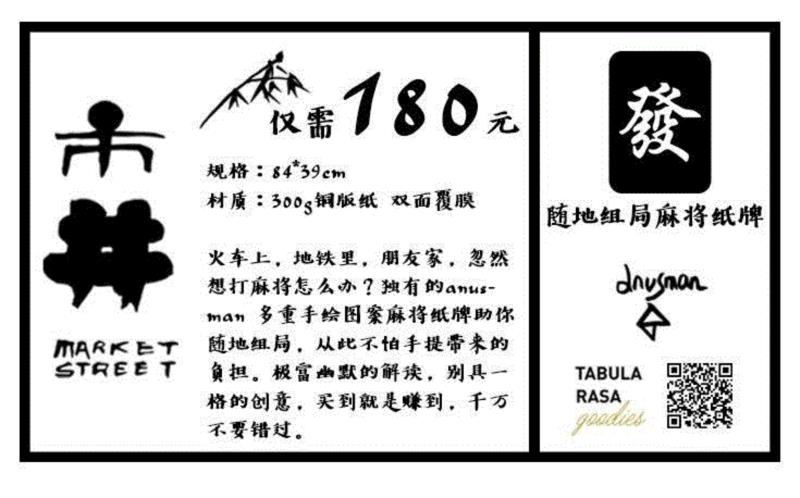 市井
MARKET
STREET
仅需180元
规格：84*39cm
材质：300g铜版纸 双面覆膜
火车上，地铁里，朋友家，忽然
想打麻将怎么办？独有的anus-
man 多重手绘图案麻将纸牌助你
随地组局，从此不怕手提带来的
负担。极富幽默的解读，别具一
格的创意，买到就是赚到，千万
不要错过。
發
随地组局麻将纸牌
anusman
TABULA
RASA
goodies